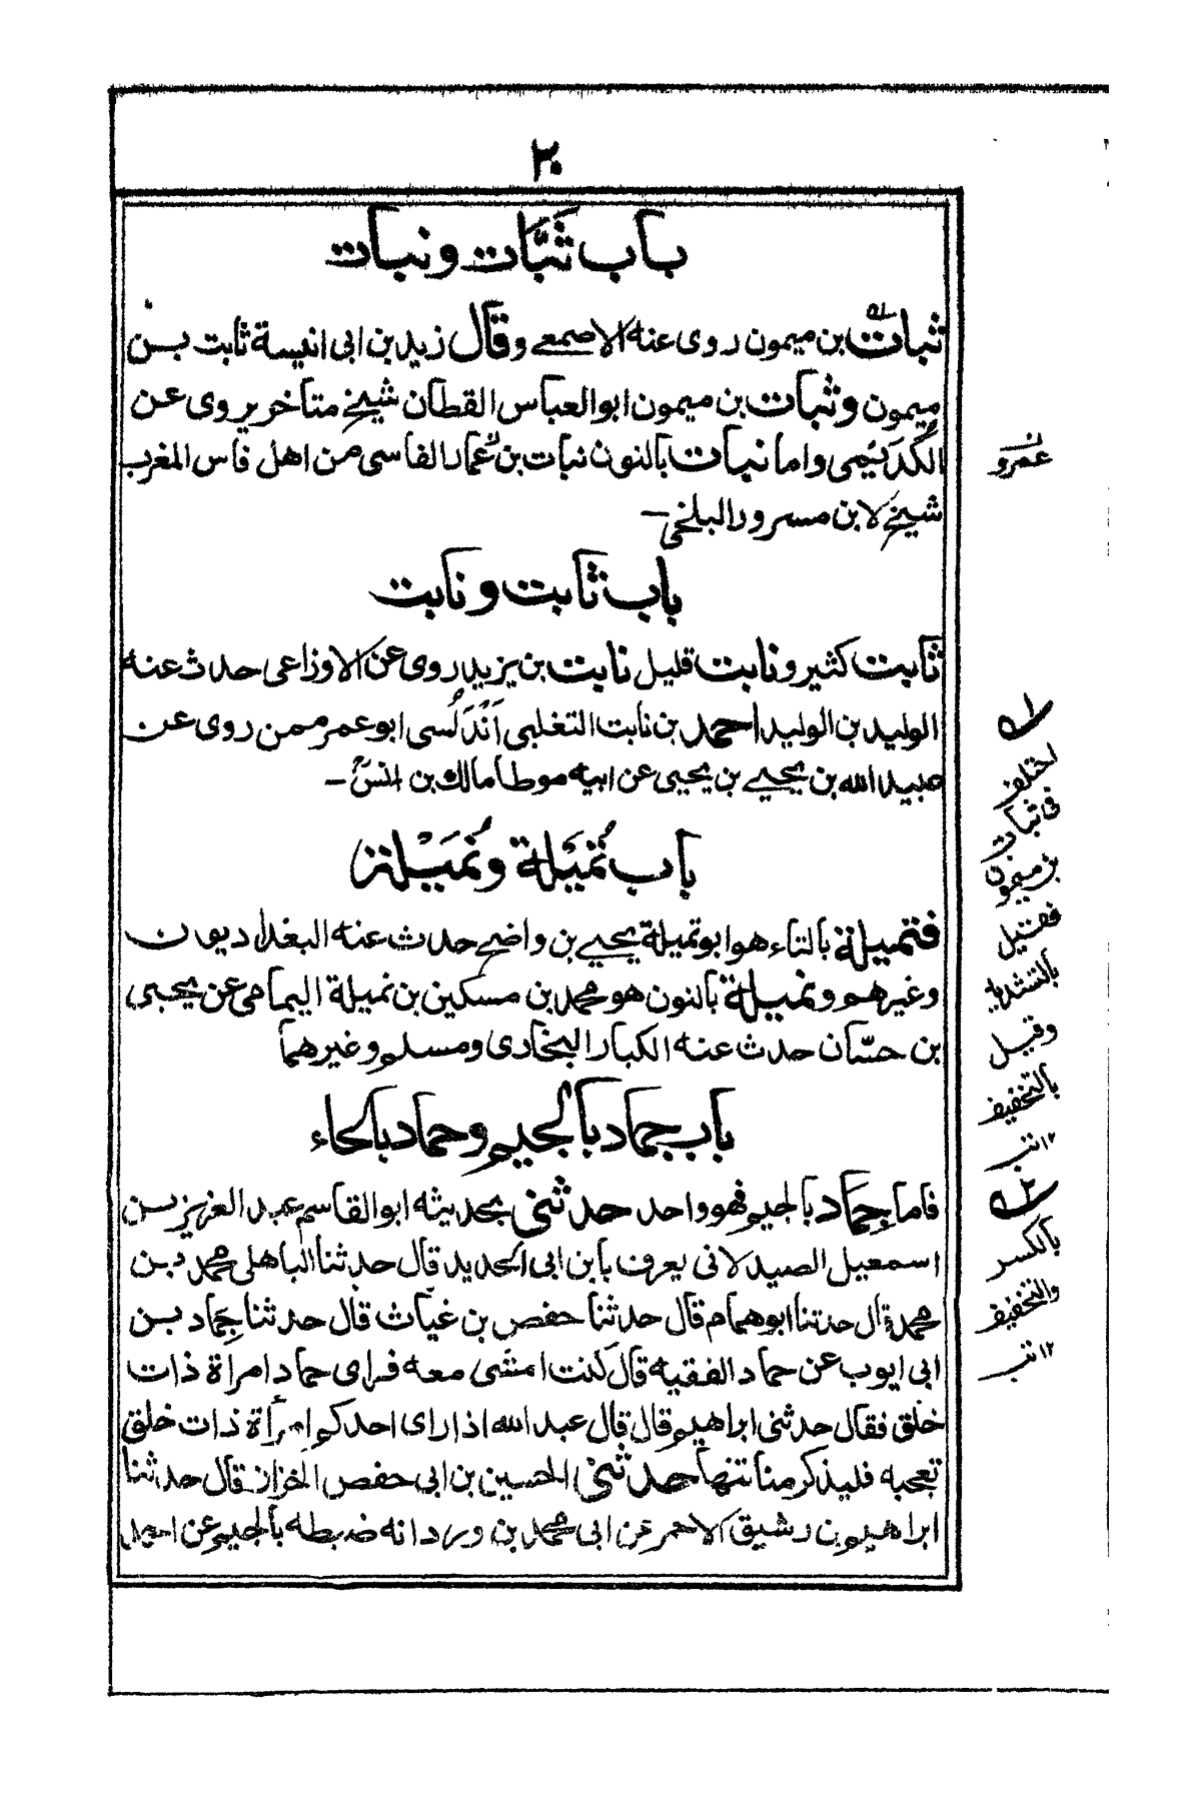 ٢٠
باب ثَبَّات ونبات
ثبات بن ميمون روى عنه الاصمعے وقال زيد بن ابى انيسة ثابت بن
ميمون وثبات بن ميمون ابو العباس القطان شيخ متاخر يروى عن
الكُدَيْمى واما نبات بالنون نبات بن عمار الفاسى من اهل فاس المغرب
شيخ لابن مسرور البلخى ـ
باب ثابت ونابت
ثابت كثير ونابت قليل نابت بن يزيد روى عن الاوزاعى حدث عنه
الوليد بن الوليد احمد بن نابت التغلبى اَنْدَلُسى ابو عمر ممن روى عن
عبيد الله بن يحيے بن يحيى عن ابيه موطا مالك بن انس ـ
باب تُمَيْلة ونُمَيْلة
فتميلة بالتاء هو ابو تميلة يحيے بن واضح حدث عنه البغداديون
وغيرهم ونميلة بالنون هو محمد بن مسكين بن نميلة اليمامى عن يحيى
بن حسّان حدث عنه الكبار البخارى ومسلم وغيرهما
باب جماد بالجيم وحماد بالحاء
فاما جماد بالجيم فهو واحد حدثنى بحديثه ابو القاسم عبد العزيز بن
اسمعيل الصيدلانى يعرف بابن ابى الحديد قال حدثنا الباهلى محمد بن
محمد قال حدثنا ابو همام قال حدثنا حفص بن غيّاث قال حدثنا جِماد بن
ابى ايوب عن حماد الفقيه قال كنت امشى معه فراى حماد امراة ذات
خلق فقال حدثنى ابراهيم قال قال عبد الله اذا راى احدكم امرأة ذات خلق
تعجبه فليذكر مناتنها حدثنى الحسين بن ابى حفص الخزان قال حدثنا
ابراهيم بن رشيق الاحمر عن ابى محمد بن وردانه ضبطه بالجيم عن احمد
ن
عمرو
ا
اختلف
فى ثبات
بن ميمون
فقيل
بالتشديد
وقيل
بالتخفيف
١٢
٢
بالكسر
والتخفيف
١٢